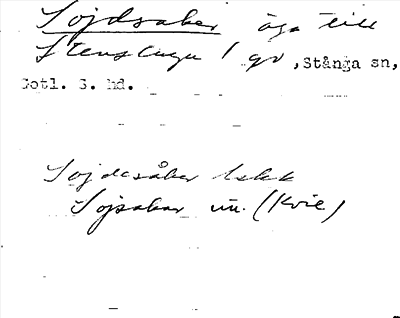 Sojdsaker äga till
Stenstugu 1 gd, Stånga sn,
Gotl. S. hd.
Sojdesåker
Sojsakar un. (Kvie)